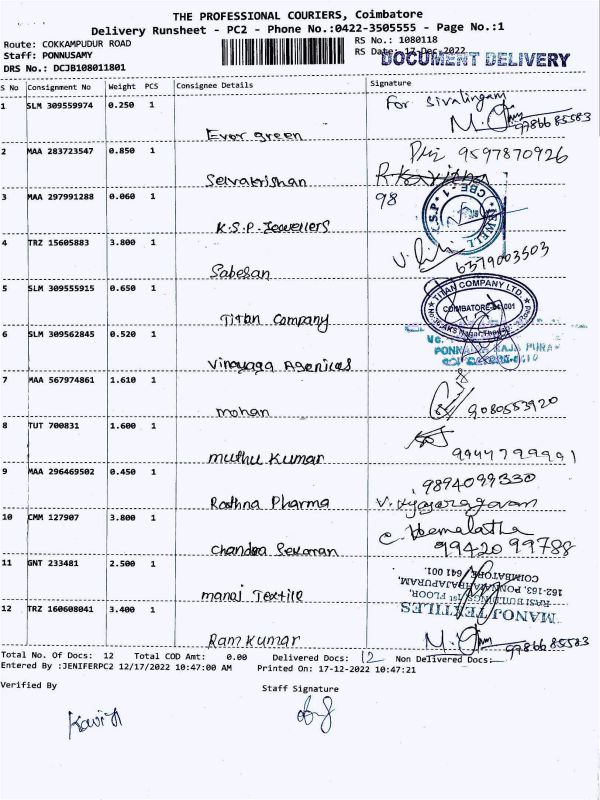 THE PROFESSIONAL COURIERS, Coimbatore
Delivery Runsheet - PC2 - Phone No.:0422-3505555 - Page No.:1
Route: COKKAMPUDUR ROAD RS No.: 1080118
Staff: PONNUSAMY RS Date: 17-Dec-2022
DRS No.: DCJB108011801 DOCUMENT DELIVERY
S No Consignment No Weight PCS Consignee Details Signature
1 SLM 309559974 0.250 1 For Sivalingam
Ever green 9786685583
2 MAA 283723547 0.850 1 9597870926
Selvakrishan
3 MAA 297991288 0.060 1 98
K.S.P. Jewellers
4 TRZ 15605883 3.800 1
Sabesan 6379003503
5 SLM 309555915 0.650 1 TITAN COMPANY LTD.
COIMBATORE-641001
Titan Company
6 SLM 309562845 0.520 1
Vinayaga Agenices
7 MAA 567974861 1.610 1
mohan 9080553920
8 TUT 700831 1.600 1
muthu Kumar 9944799991
9 MAA 296469502 0.450 1 9894099330
Rathna Pharma V. Vijayaragavan
10 CMM 127907 3.800 1 C. Hemalatha
Chandra Sekaran 9942099788
11 GNT 233481 2.500 1
manoj Textile
MANOJ TEXTILES
RASI BUILDINGS, 1st FLOOR,
162-163, PONNAIYARAJAPURAM,
COIMBATORE 641 001.
12 TRZ 160608041 3.400 1
Ram Kumar 9786685583
Total No. Of Docs: 12 Total COD Amt: 0.00 Delivered Docs: 12 Non Delivered Docs:
Entered By :JENIFERPC2 12/17/2022 10:47:00 AM Printed On: 17-12-2022 10:47:21
Verified By Staff Signature